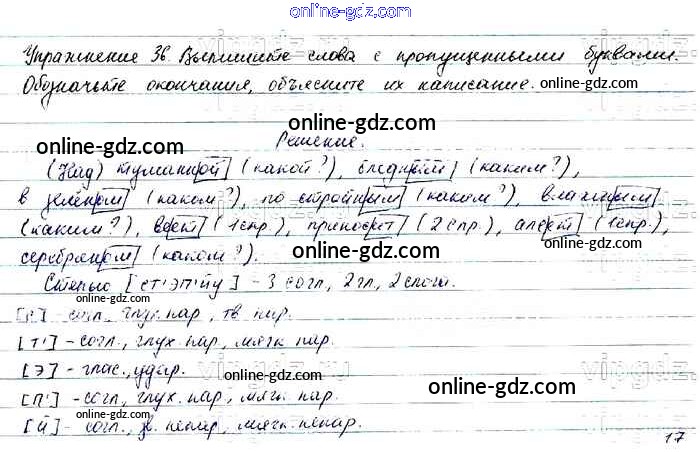 online-gdz.com
Упражнение 36. Выпишите слова с пропущенными буквами.
Обозначьте окончания, объясните их написание. online-gdz.com
online-gdz.com
Решение.
(Над) туманной (какой?), бледным (каким?),
online-gdz.com online-gdz.com
в зелёном (каком?), по стройным (каким?), влажным
(каким?), веет (1спр.), приносит (2 спр.), алеет (1спр.),
online-gdz.com
серебряном (каком?).
online-gdz.com
Степью [ст'эп'йу] - 3 согл, 2гл, 2 слога.
online-gdz.com
[с] - согл, глух. пар, тв. пар.
[т'] - согл., глух. пар, мягк. пар.
[э] - глас., удар.
online-gdz.com
online-gdz.com
[п'] - согл, глух. пар, мягк. пар.
online-gdz.com
[й] - согл, зв. непар, мягк. непар.
17